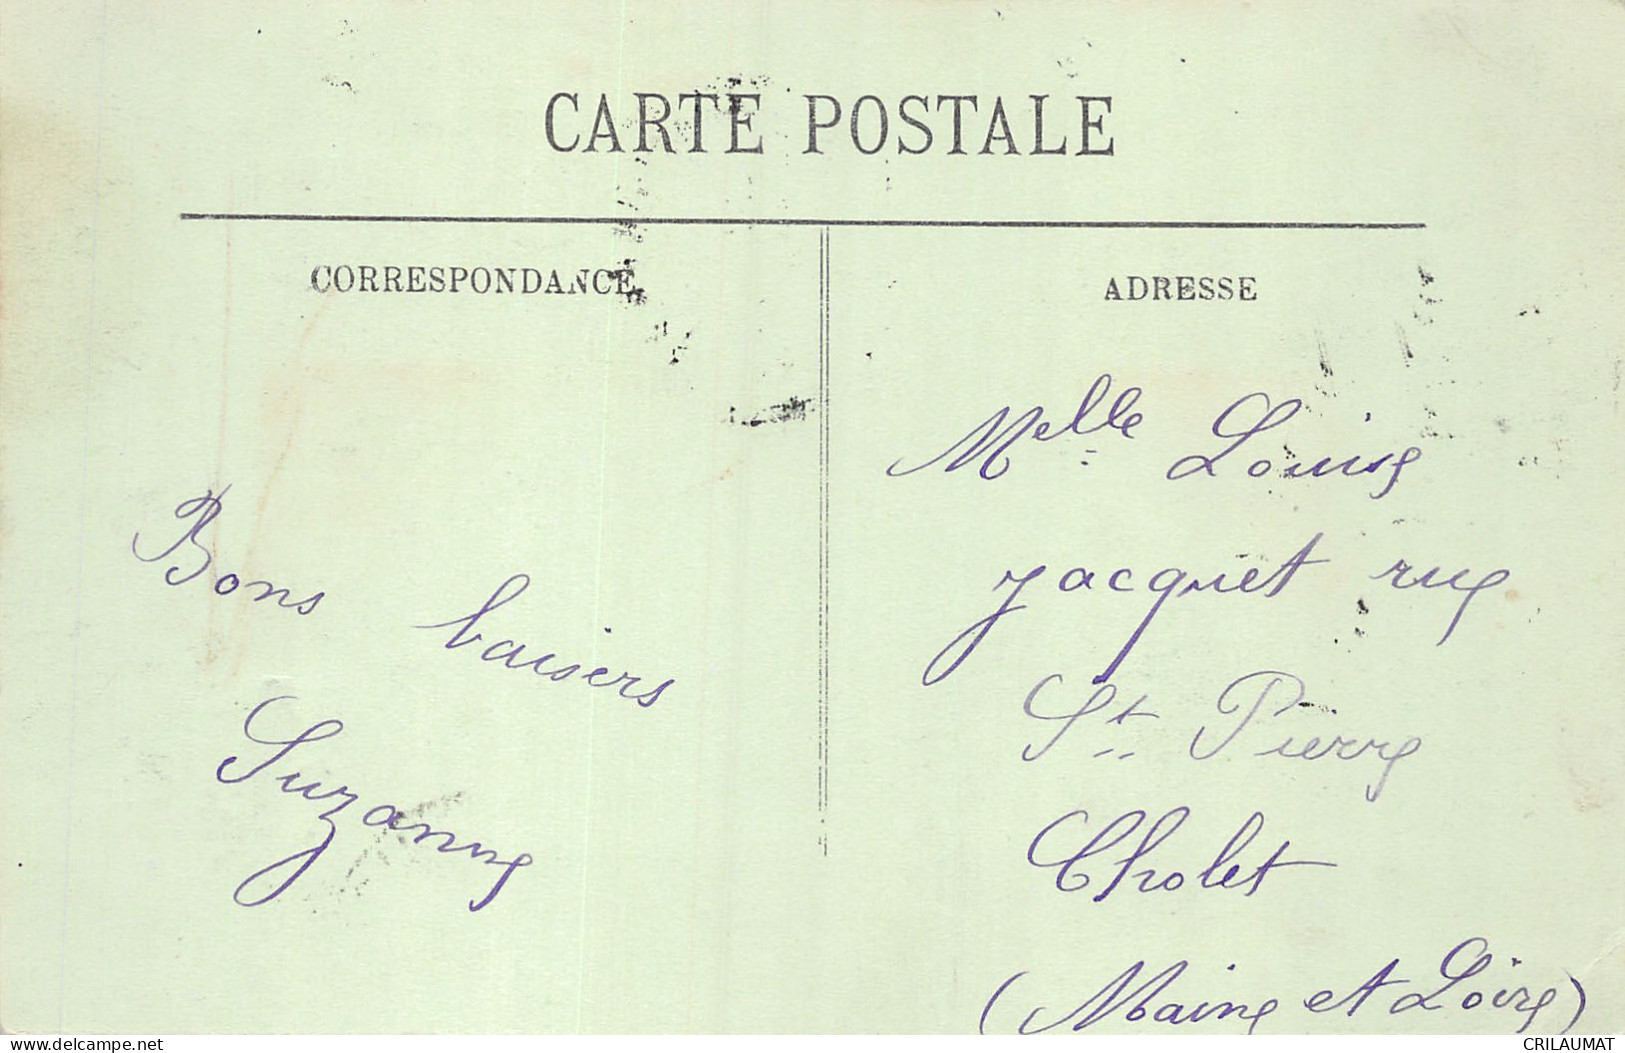 CARTE POSTALE
CORRESPONDANCE
Bons baisers
Suzanne
ADRESSE
Melle Louise
Jacquet rue
St Pierre
Cholet
(Maine et Loire)
www.delcampe.net
CRILAUMAT